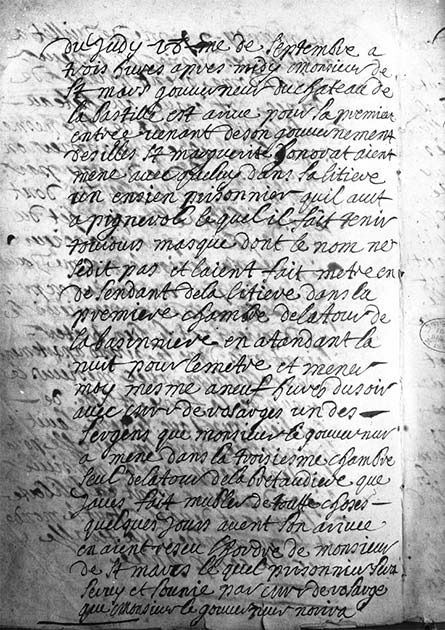 du Judy 18me de Septembre a
trois hures apres midy monsieur de
St mars gouverneur du chateau de
la bastille est arive pour sa premiere
entree venant de son gouvernement
des illes St marguerite honorat aient
mene avec queluy dans sa litiere
un ensien prisonnier quil avet
a pignerol lequel il fait tenir
touiours masque dont le nom ne
se dit pas et laient fait metre en
de sendant de la litiere dans la
premiere chambre de la tour de
la basinniere en atandant la
nuit pour le metre et mener
moy mesme a neuf hures du soir
avec mr de rosarges un des
sergens que monsieur le gouverneur
a mene dans la troisiesme chambre
seul de la tour de la bretaudiere que
javes fait mubler de touttes choses
quelques jours avent son arivee
en aient reseu lhordre de monsieur
de St mars lequel prisonnier sera
servy et sounie par mr de rosarge
que monsieur le gouverneur norira